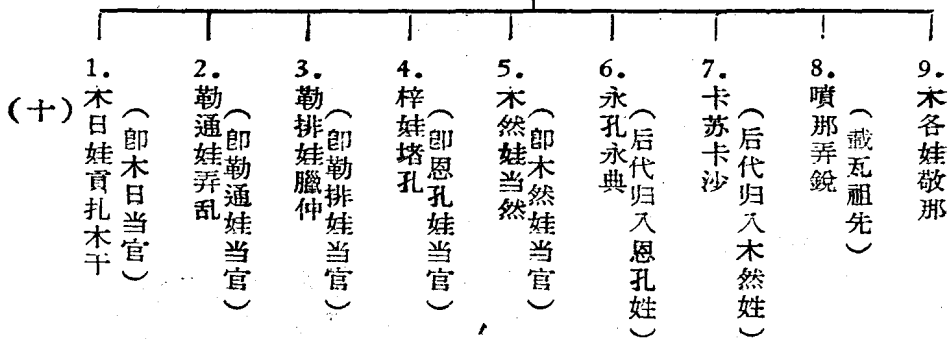 （十）
1.
木日娃貢扎木干
（卽木日当官）
2.
勒通娃弄乱
（卽勒通娃当官）
3.
勒排娃臘仲
（卽勒排娃当官）
4.
梓娃堵孔
（卽恩孔娃当官）
5.
木然娃当然
（卽木然娃当官）
6.
永孔永典
（后代归入恩孔姓）
7.
卡苏卡沙
（后代归入木然姓）
8.
噴那弄銳
（載瓦祖先）
9.
木各娃敬那